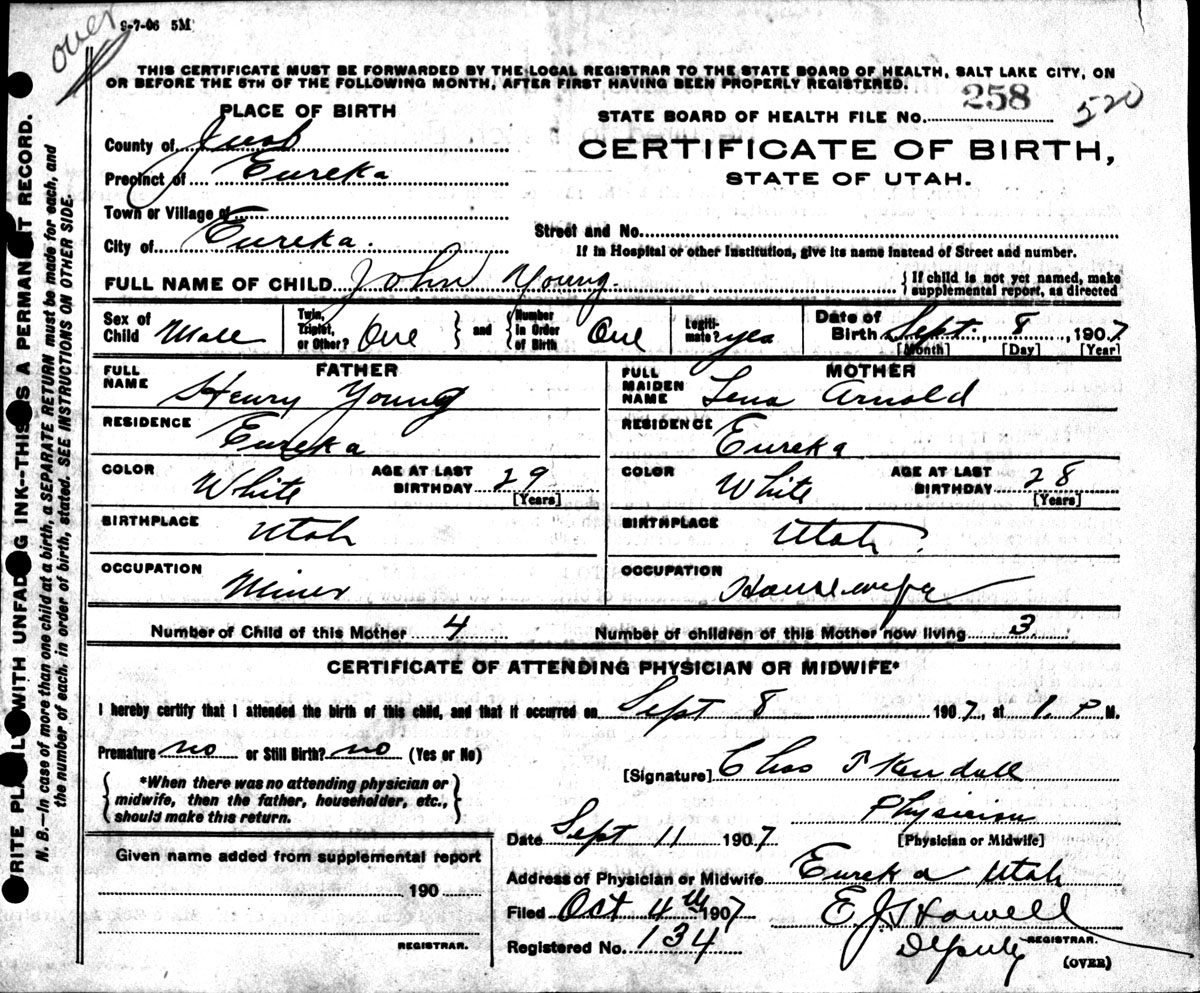 over
9-7-06 5M
THIS CERTIFICATE MUST BE FORWARDED BY THE LOCAL REGISTRAR TO THE STATE BOARD OF HEALTH, SALT LAKE CITY, ON
OR BEFORE THE 5TH OF THE FOLLOWING MONTH, AFTER FIRST HAVING BEEN PROPERLY REGISTERED.
PLACE OF BIRTH
STATE BOARD OF HEALTH FILE No. 258 520
County of Juab
CERTIFICATE OF BIRTH,
Precinct of Eureka
STATE OF UTAH.
Town or Village of
Street and No.
City of Eureka.
If in Hospital or other Institution, give its name instead of Street and number.
FULL NAME OF CHILD John Young.
{ If child is not yet named, make
supplemental report, as directed
Sex of Child Male
Twin, Triplet, or Other? One } and { Number in Order of Birth One
Legiti-mate? yes
Date of Birth Sept. 8, 1907
[Month] [Day] [Year]
FATHER
FULL NAME Henry Young
RESIDENCE Eureka
COLOR White AGE AT LAST BIRTHDAY 29
[Years]
BIRTHPLACE Utah
OCCUPATION Miner
MOTHER
FULL MAIDEN NAME Lena Arnold
RESIDENCE Eureka
COLOR White AGE AT LAST BIRTHDAY 28
[Years]
BIRTHPLACE Utah.
OCCUPATION Housewife
Number of Child of this Mother 4 Number of children of this Mother now living 3
CERTIFICATE OF ATTENDING PHYSICIAN OR MIDWIFE*
I hereby certify that I attended the birth of this child, and that it occurred on Sept 8 1907, at 1 P M.
Premature no or Still Birth? no (Yes or No)
{ *When there was no attending physician or
midwife, then the father, householder, etc.,
should make this return. }
[Signature] Chas T Kendall
Physician
[Physician or Midwife]
Date Sept 11 1907
Address of Physician or Midwife Eureka Utah
Filed Oct 4th 1907 E J Howell
Registered No. 134 Deputy REGISTRAR.
(OVER)
Given name added from supplemental report
190
REGISTRAR.
RITE PL WITH UNFAD G INK--THIS S A PERMAN T RECORD.
N. B.—In case of more than one child at a birth, a SEPARATE RETURN must be made for each, and
the number of each, in order of birth, stated. SEE INSTRUCTIONS ON OTHER SIDE.